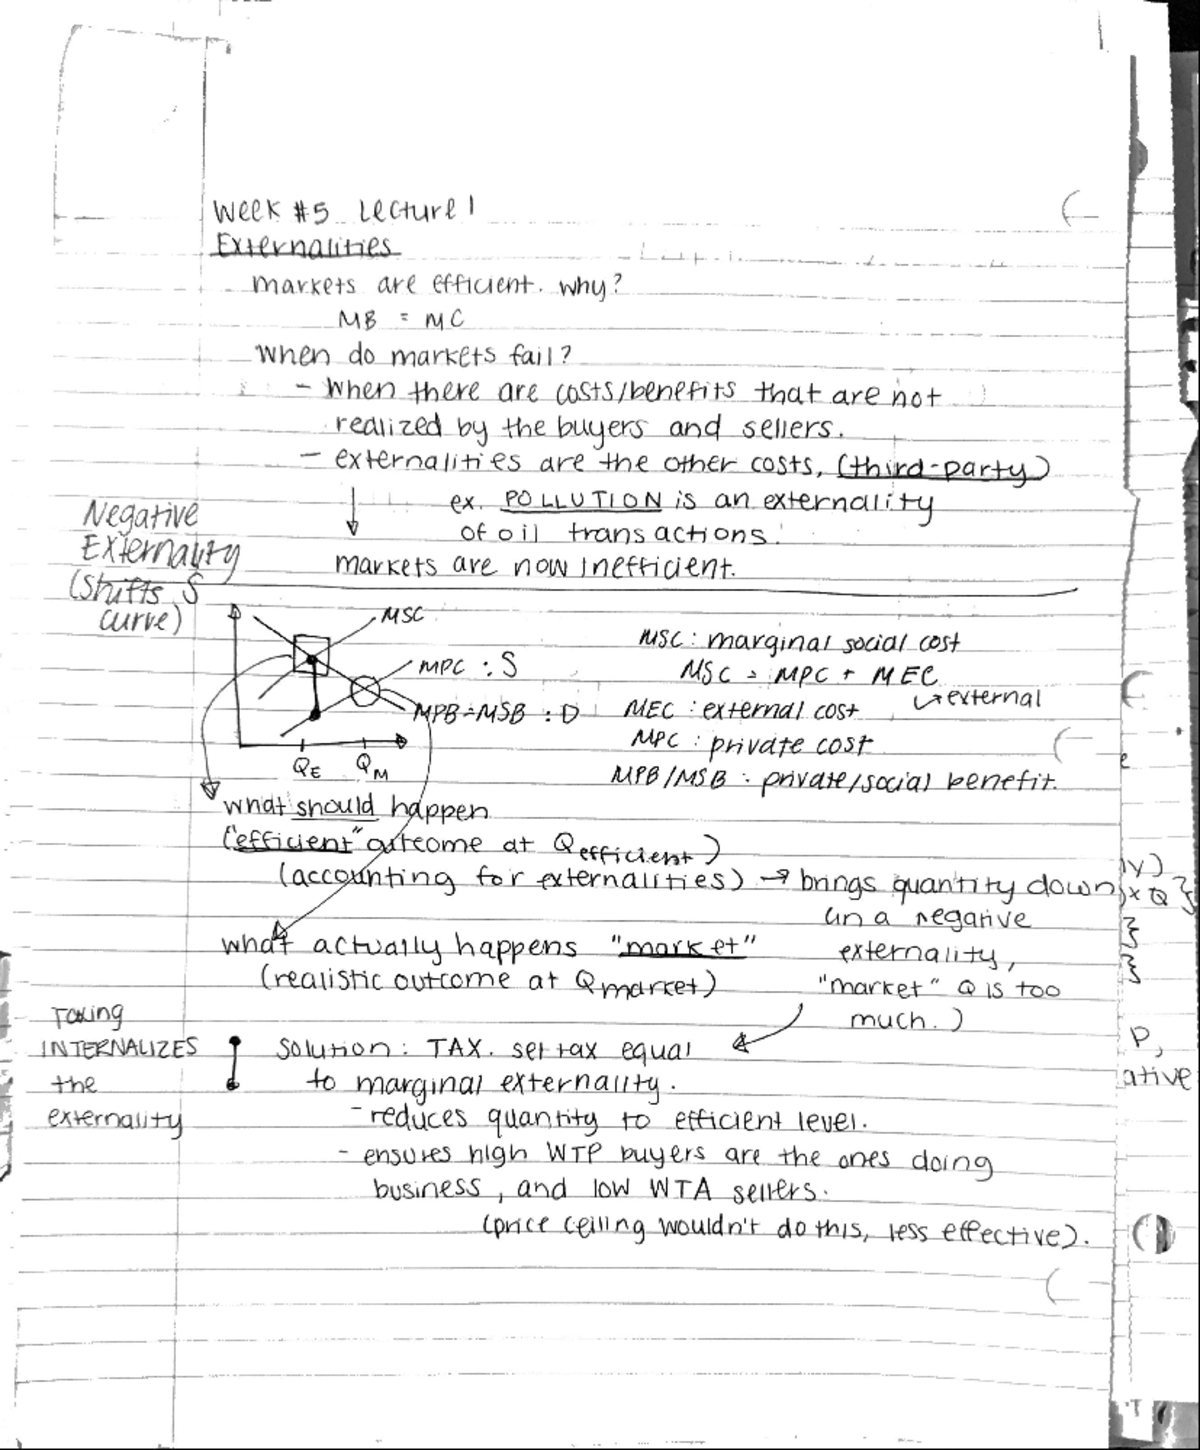 Week #5 Lecture 1
Externalities
markets are efficient. why?
MB = MC
When do markets fail?
- When there are costs/benefits that are not
realized by the buyers and sellers.
- externalities are the other costs, (third-party)
ex. POLLUTION is an externality
of oil transactions.
markets are now inefficient.
Negative
Externality
(Shifts S
curve)
MSC
MPC : S
MPB=MSB : D
QE
QM
MSC : marginal social cost
MSC = MPC + MEC
external
MEC : external cost
MPC : private cost
MPB/MSB : private/social benefit.
what should happen
("efficient" outcome at Qefficient)
(accounting for externalities) → brings quantity down
(in a negative
externality,
"market" Q is too
much.)
what actually happens "market"
(realistic outcome at Qmarket)
Taxing
INTERNALIZES
the
externality
Solution: TAX. set tax equal
to marginal externality.
- reduces quantity to efficient level.
- ensures high WTP buyers are the ones doing
business, and low WTA sellers.
(price ceiling wouldn't do this, less effective).
P,
ative